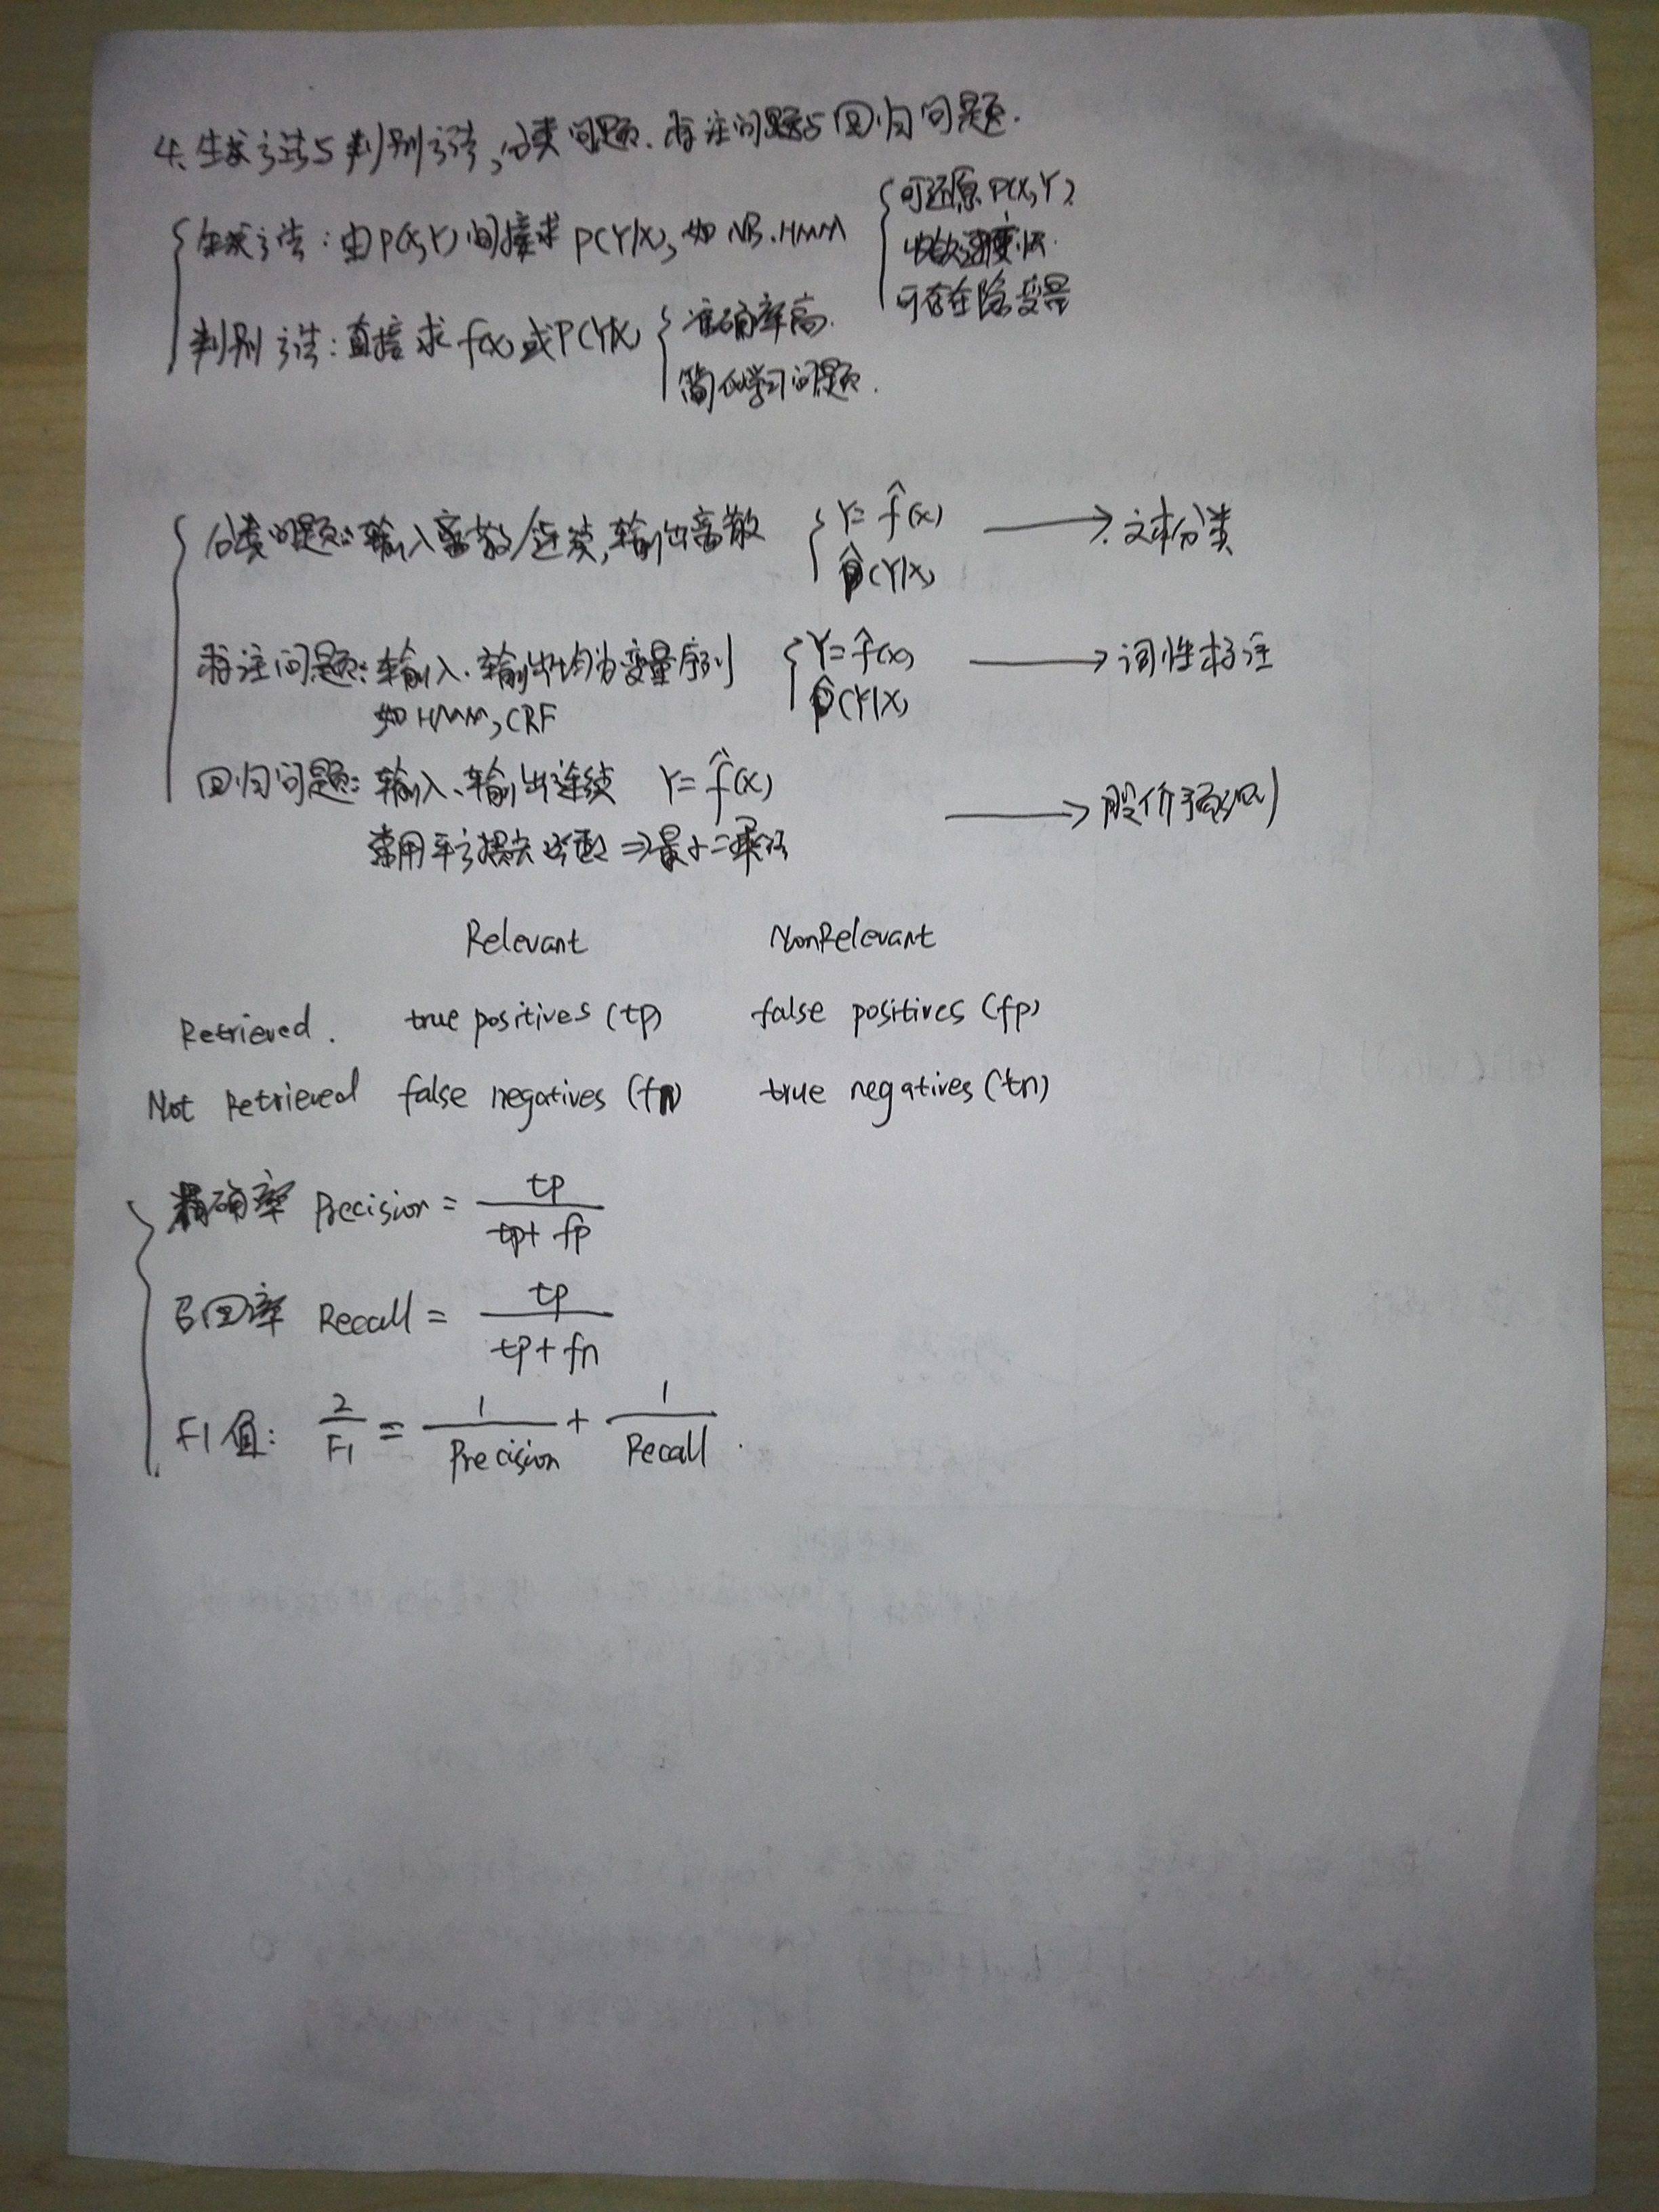 4、生成方法与判别方法,分类问题.标注问题与回归问题.
生成方法:由P(X,Y)间接求P(Y|X),如NB.HMM
可还原P(X,Y)
收敛速度快.
可存在隐变量
判别方法:直接求f(x)或P(Y|X)
准确率高.
简化学习问题.
分类问题:输入离散/连续,输出离散
Y=f̂(x)
P̂(Y|X)
→文本分类
标注问题:输入.输出均为变量序列
如HMM,CRF
Y=f̂(x)
P̂(Y|X)
→词性标注
回归问题:输入、输出连续 Y=f̂(x)
常用平方损失函数⇒最小二乘法
→股价预测
Relevant NonRelevant
Retrieved. true positives(tp) false positives(fp)
Not Retrieved false negatives(fn) true negatives(tn)
精确率 Precision = tp / (tp+fp)
召回率 Recall = tp / (tp+fn)
F1值: 2/F1 = 1/Precision + 1/Recall.